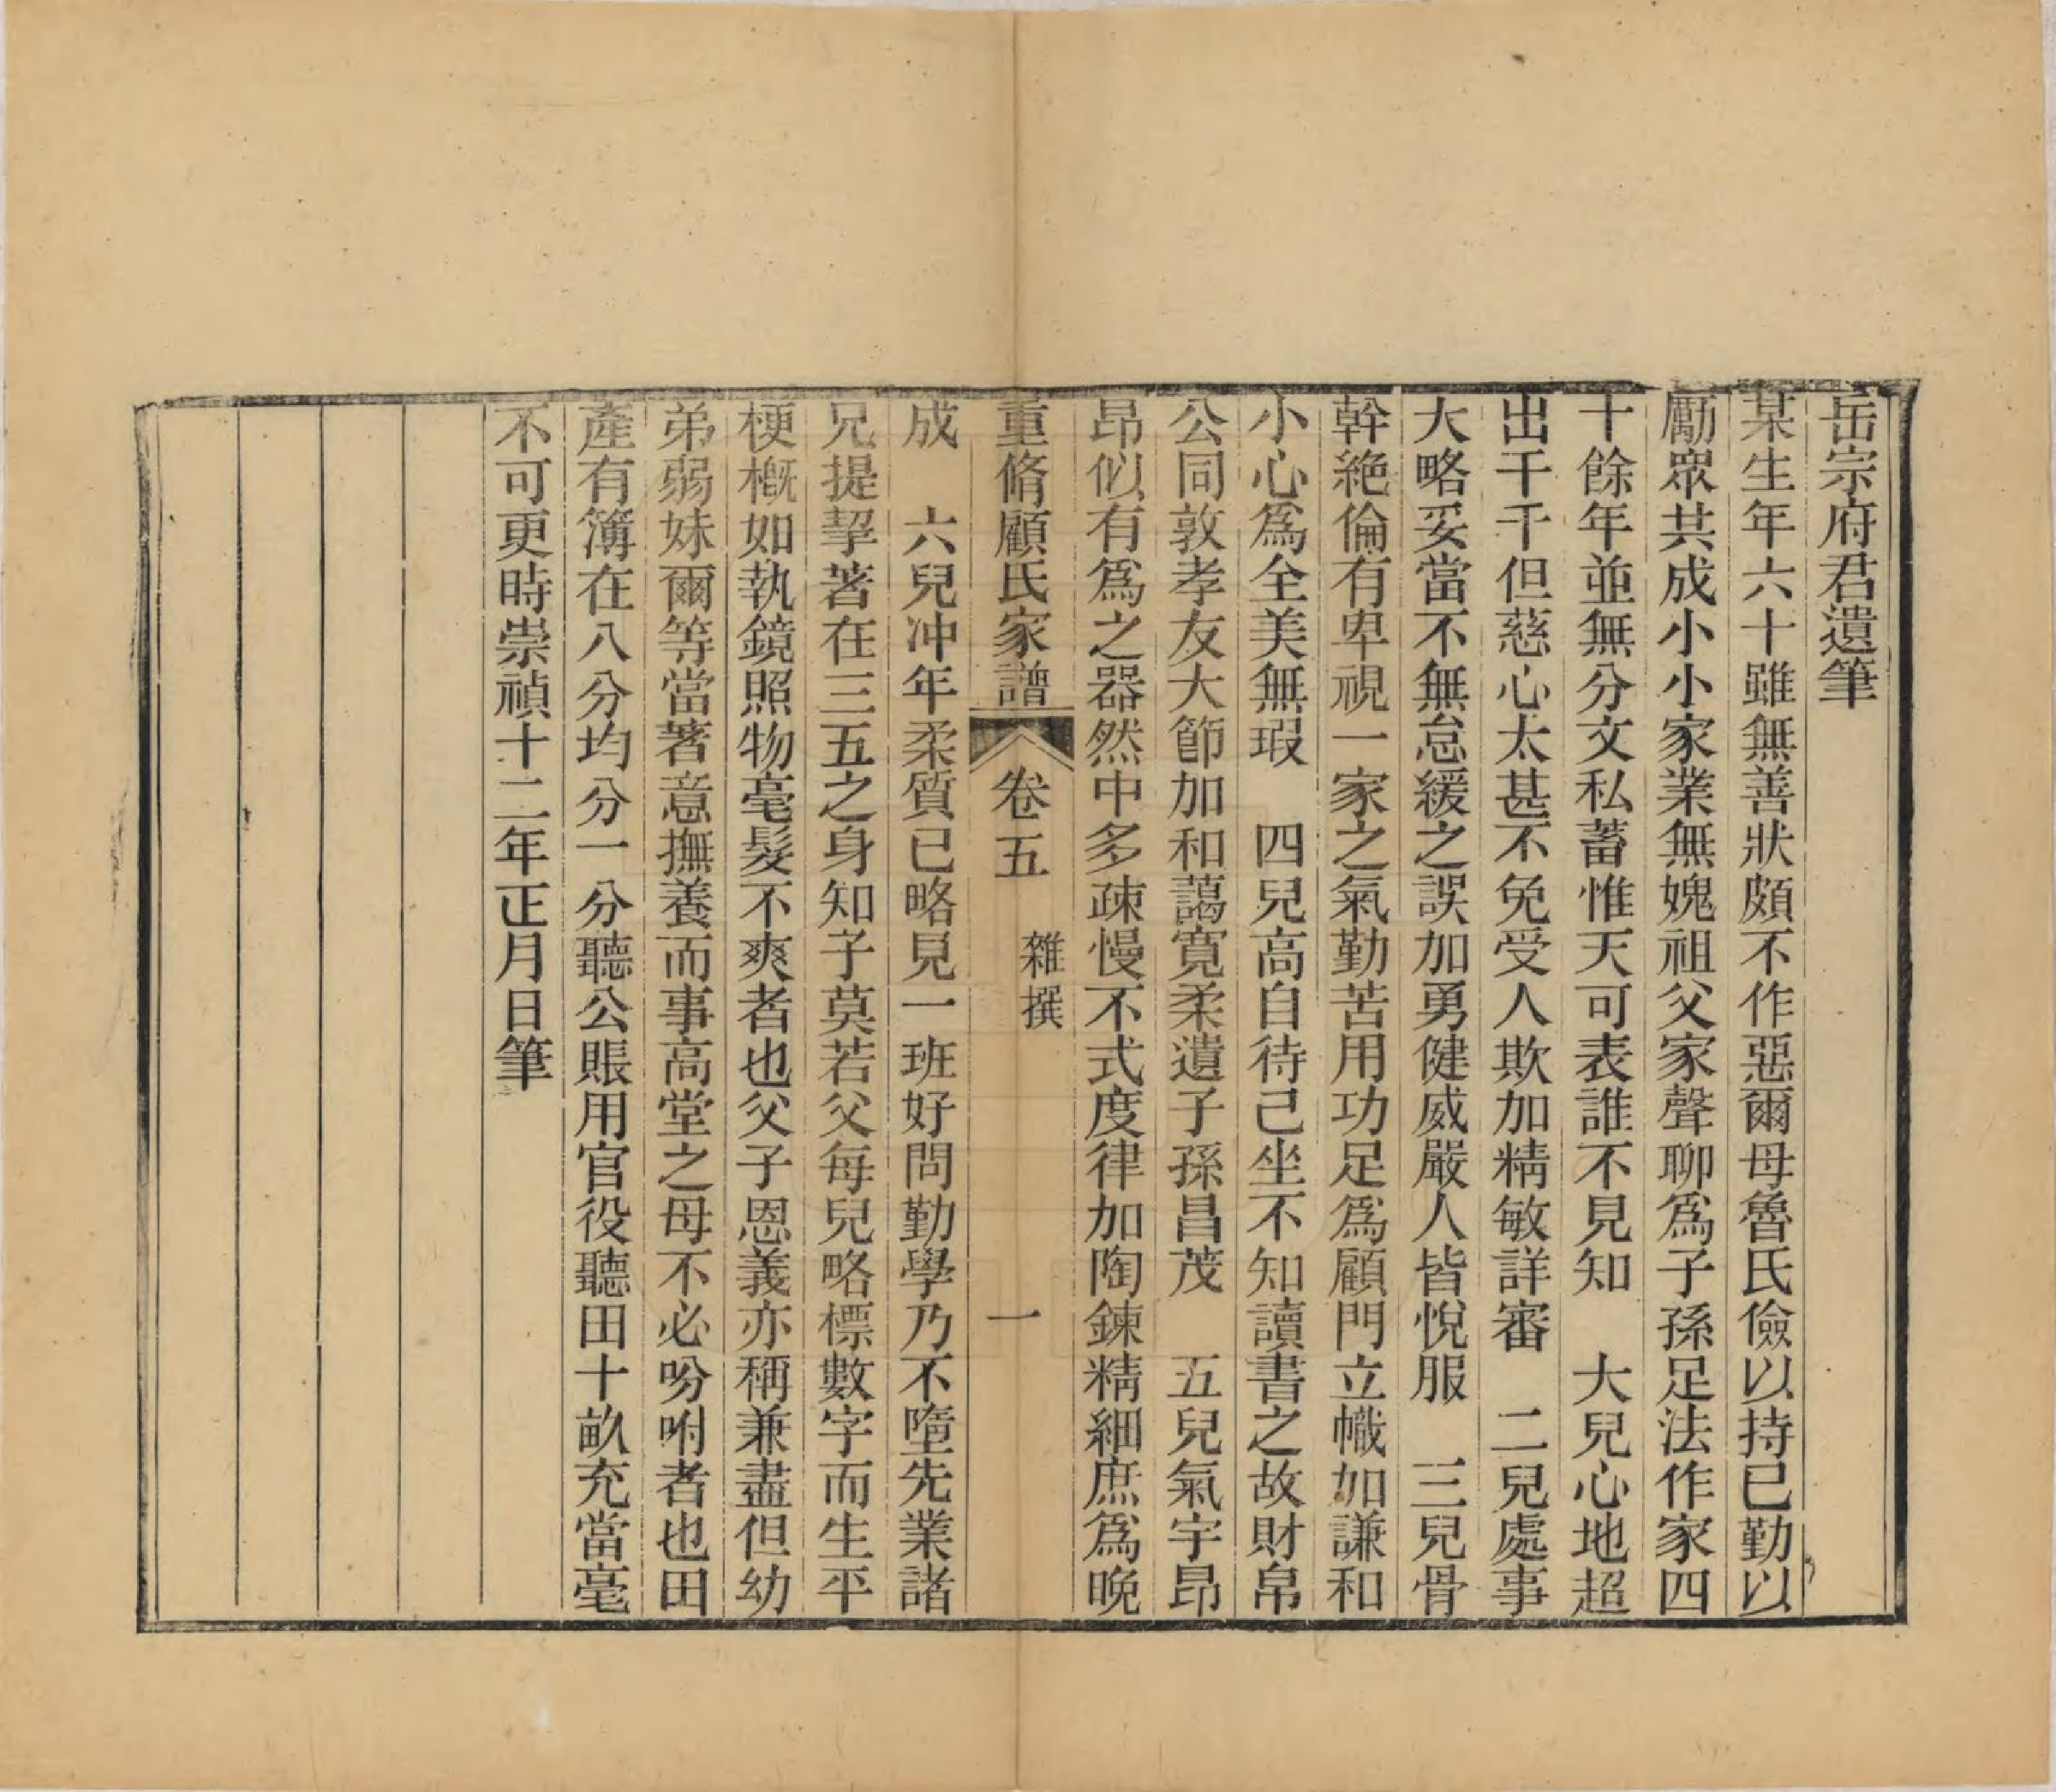 岳宗府君遺筆
某生年六十雖無善狀頗不作惡爾母魯氏儉以持已勤以
勵眾共成小小家業無媿祖父家聲聊爲子孫足法作家四
十餘年並無分文私蓄惟天可表誰不見知　大兒心地超
出千千但慈心太甚不免受人欺加精敏詳審　二兒處事
大略妥當不無怠緩之誤加勇健威嚴人皆悅服　三兒骨
幹絶倫有卑視一家之氣勤苦用功足爲顧門立幟加謙和
小心爲全美無瑕　四兒高自待己坐不知讀書之故財帛
公同敦孝友大節加和藹寬柔遺子孫昌茂　五兒氣宇昂
昂似有爲之器然中多疎慢不式度律加陶鍊精細庶爲晚
重脩顧氏家譜　卷五　雜撰　一
成　六兒冲年柔質已略見一班好問勤學乃不墮先業諸
兄提挈著在三五之身知子莫若父每兒略標數字而生平
梗槪如執鏡照物毫髮不爽者也父子恩義亦稱兼盡但幼
弟弱妹爾等當著意撫養而事高堂之母不必吩咐者也田
產有簿在八分均分一分聽公賬用官役聽田十畝充當毫
不可更時崇禎十二年正月日筆